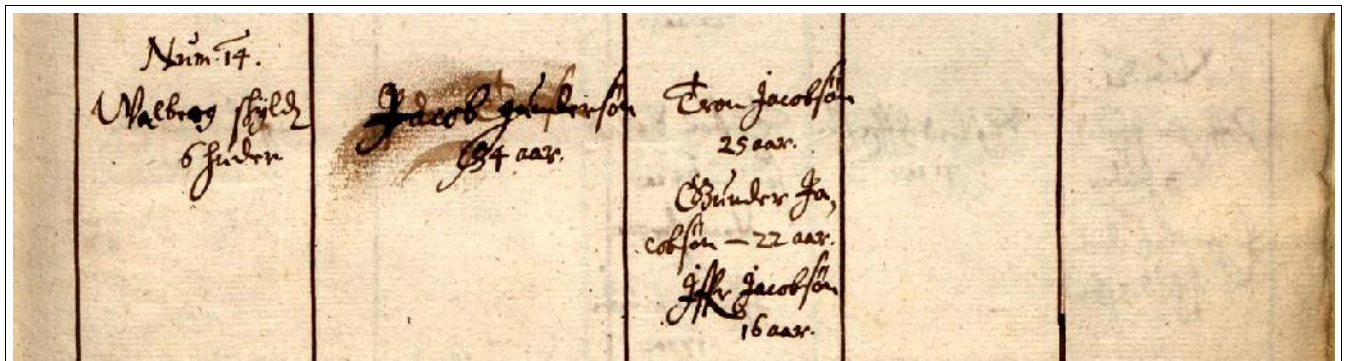 Num. 14.
Walberg skyld
6 huder
Jacob gundersøn
64 aar.
Tron Jacobsøn
25 aar.
Gunder Ja,
cobsøn — 22 aar.
Jffr Jacobsøn
16 aar.